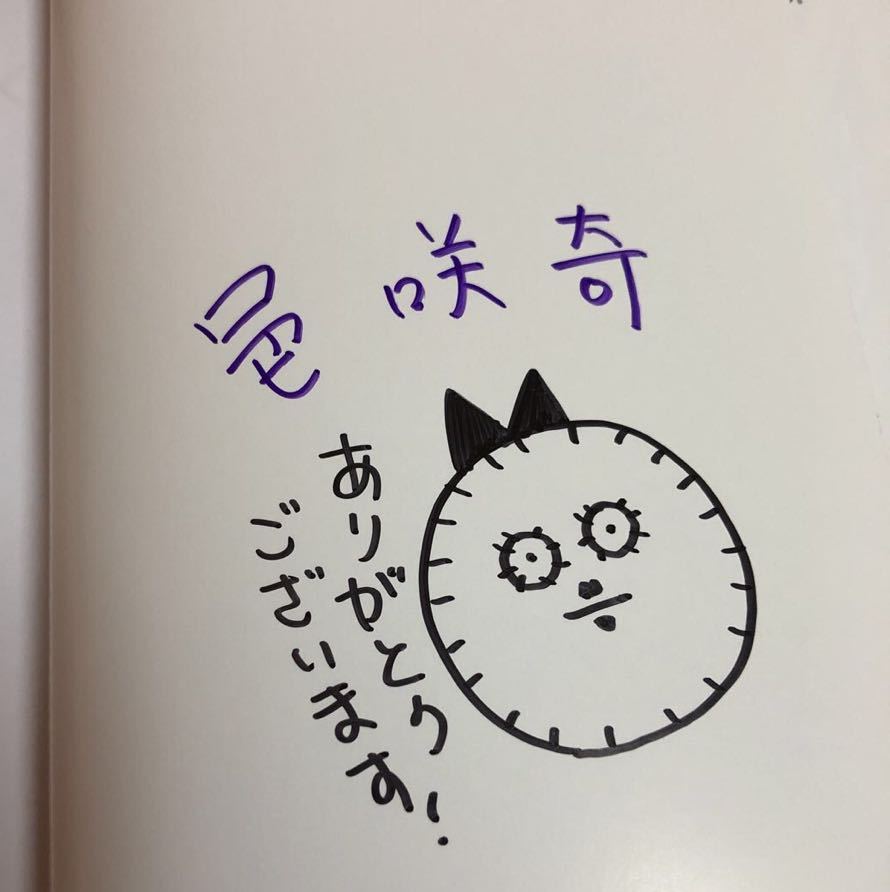 咲奇
ありがとう
ございます!